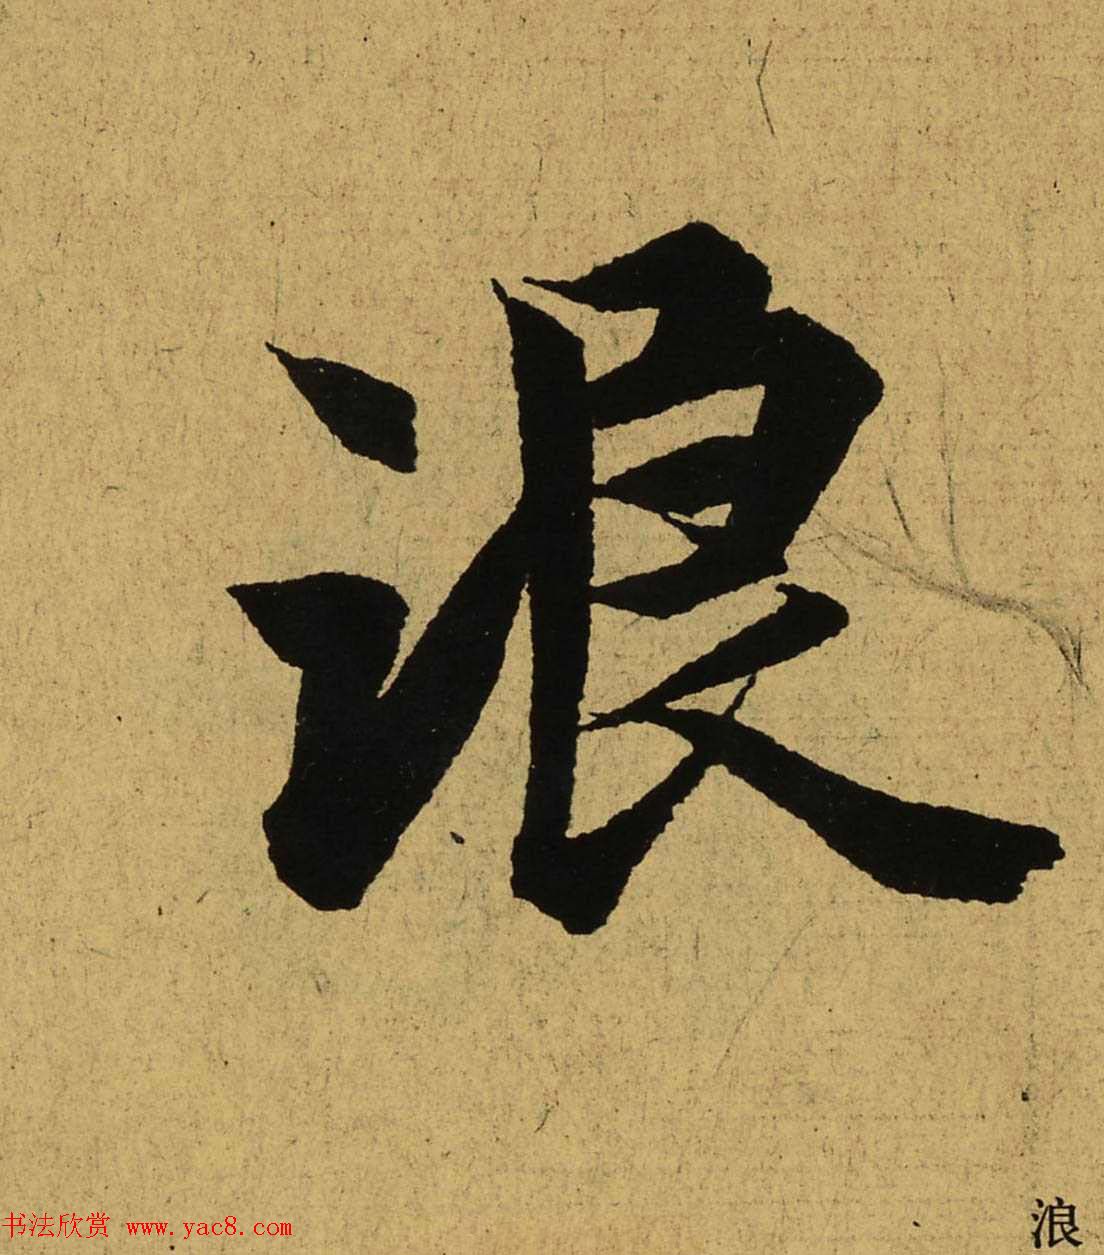 浪
书法欣赏 www.yac8.com
浪